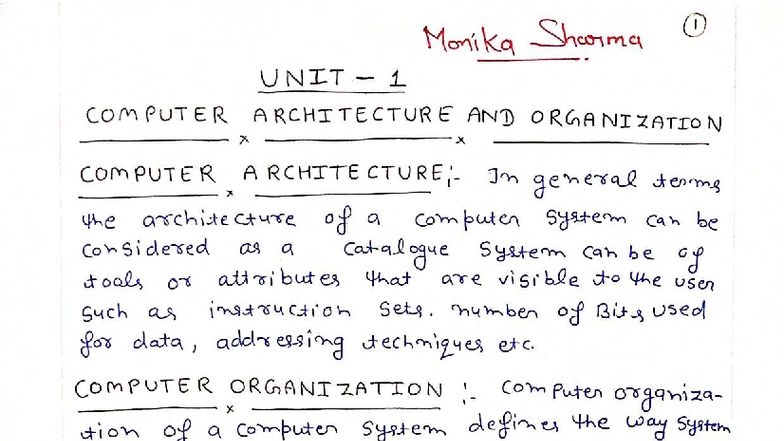 Monika Sharma 1
UNIT - 1
COMPUTER ARCHITECTURE AND ORGANIZATION
COMPUTER ARCHITECTURE :- In general terms
the architecture of a computer system can be
considered as a catalogue system can be of
tools or attributes that are visible to the user
such as instruction sets. number of Bits used
for data, addressing techniques etc.
COMPUTER ORGANIZATION :- Computer organiza-
tion of a computer system defines the way system